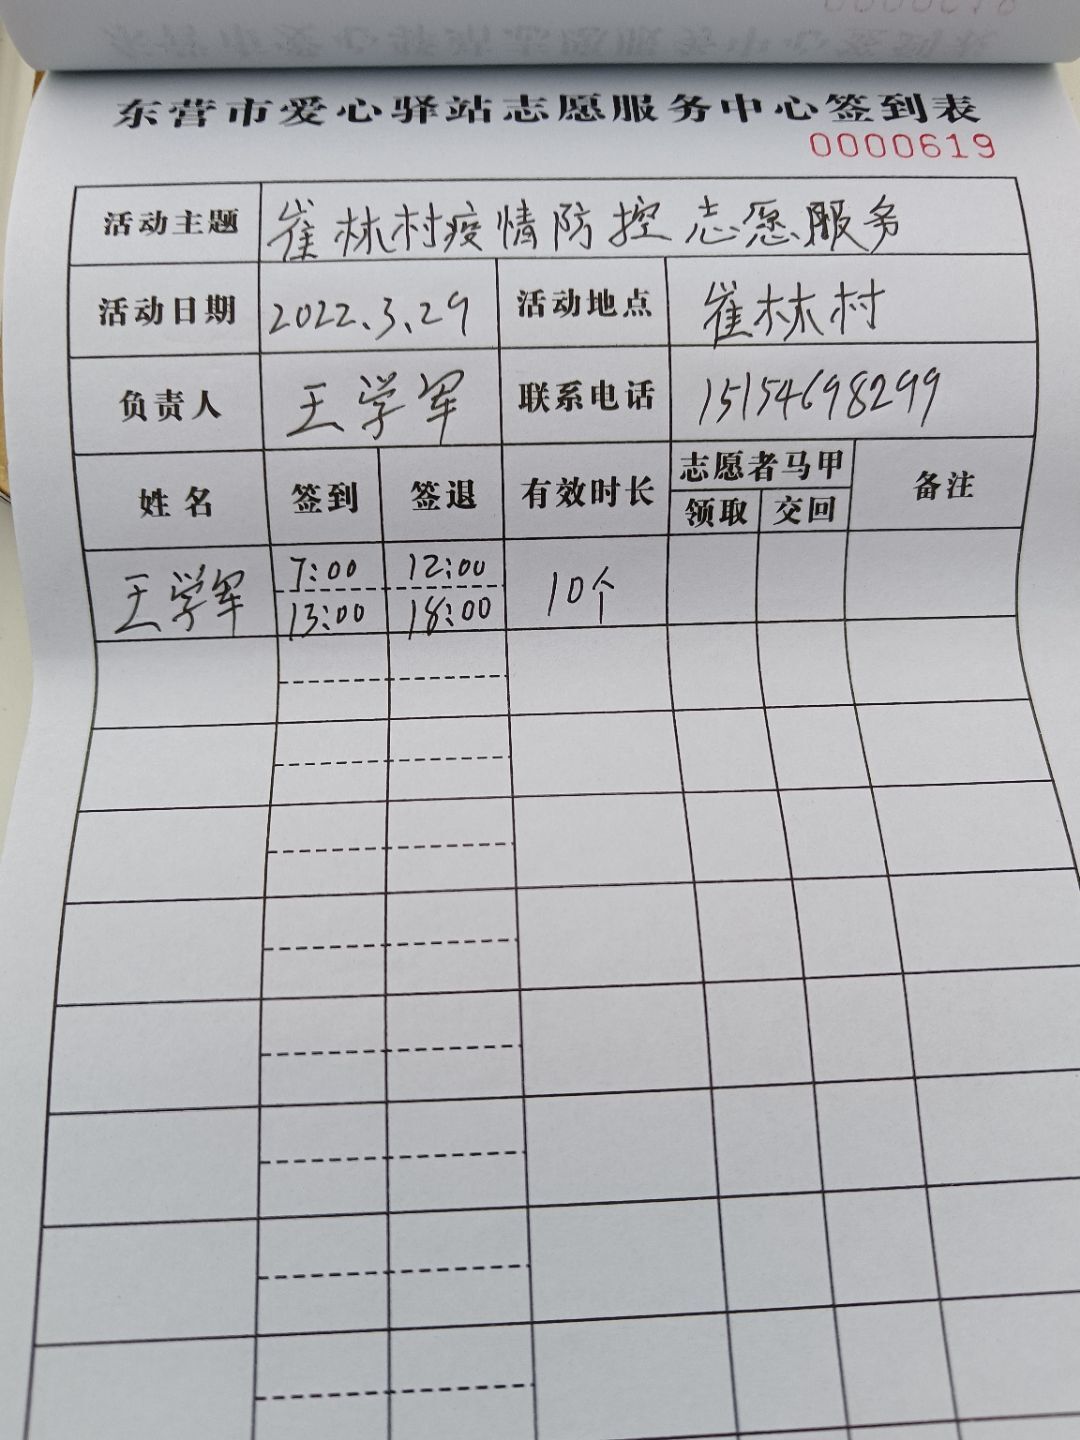 东营市爱心驿站志愿服务中心签到表
0000619
活动主题 崔林村疫情防控志愿服务
活动日期 2022.3.29 活动地点 崔林村
负责人 王学军 联系电话 15154698299
姓名 签到 签退 有效时长 志愿者马甲 备注
领取 交回
王学军 7:00 12:00 10个
13:00 18:00